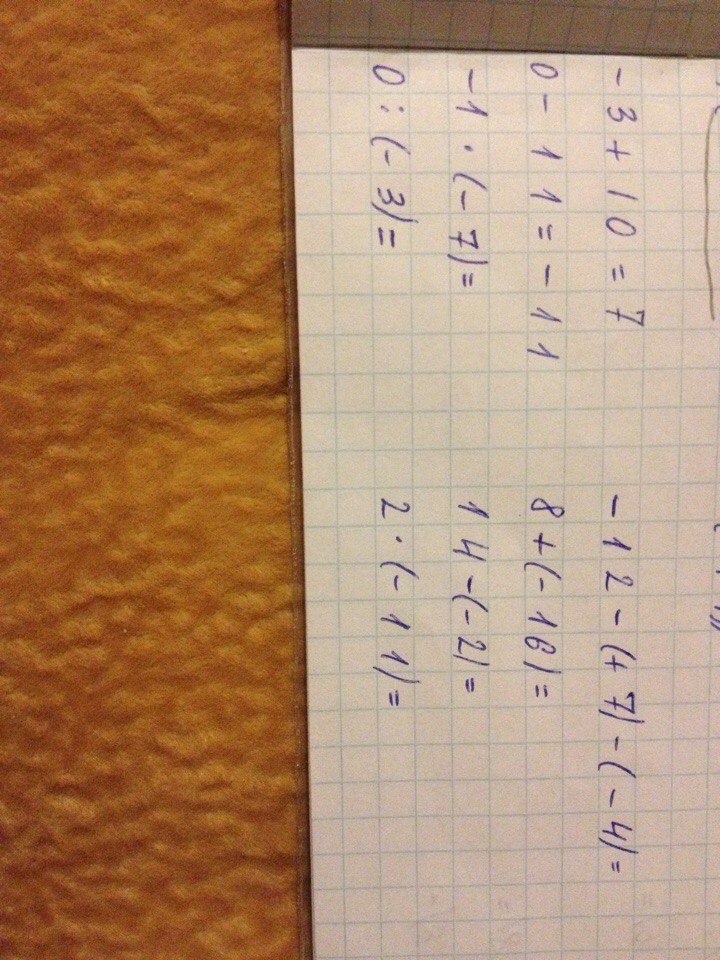 -3+10=7
0-11=-11
-1·(-7)=
0:(-3)=
-12-(+7)-(-4)=
8+(-16)=
14-(-2)=
2·(-11)=